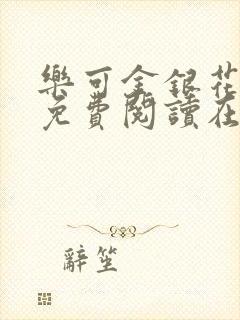 樂可金銀花
免費閱讀在
辭笙